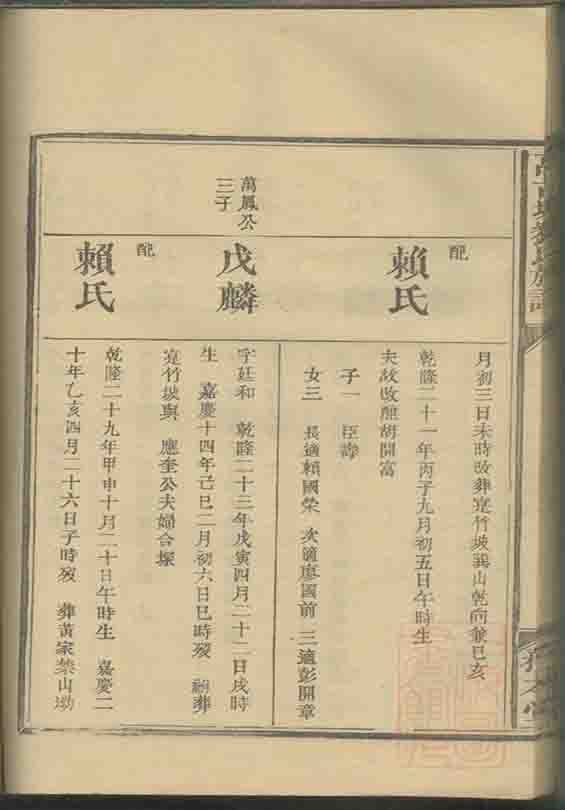 月初三日未時故葬寔竹坡巽山乾向兼巳亥
配
賴氏
乾隆二十一年丙子九月初五日午時生
夫故改醮胡開富
子一 臣壽
女三 長適賴國榮 次適廖國前 三適彭開章
萬鳳公
三子
戊麟
字廷和 乾隆二十三年戊寅四月二十二日戌時
生 嘉慶十四年己巳二月初六日巳時歿 祔葬
寔竹坡與 應奎公夫婦合塚
配
賴氏
乾隆二十九年甲申十月二十日午時生 嘉慶二
十年乙亥四月二十六日子時歿 葬黃家禁山坳